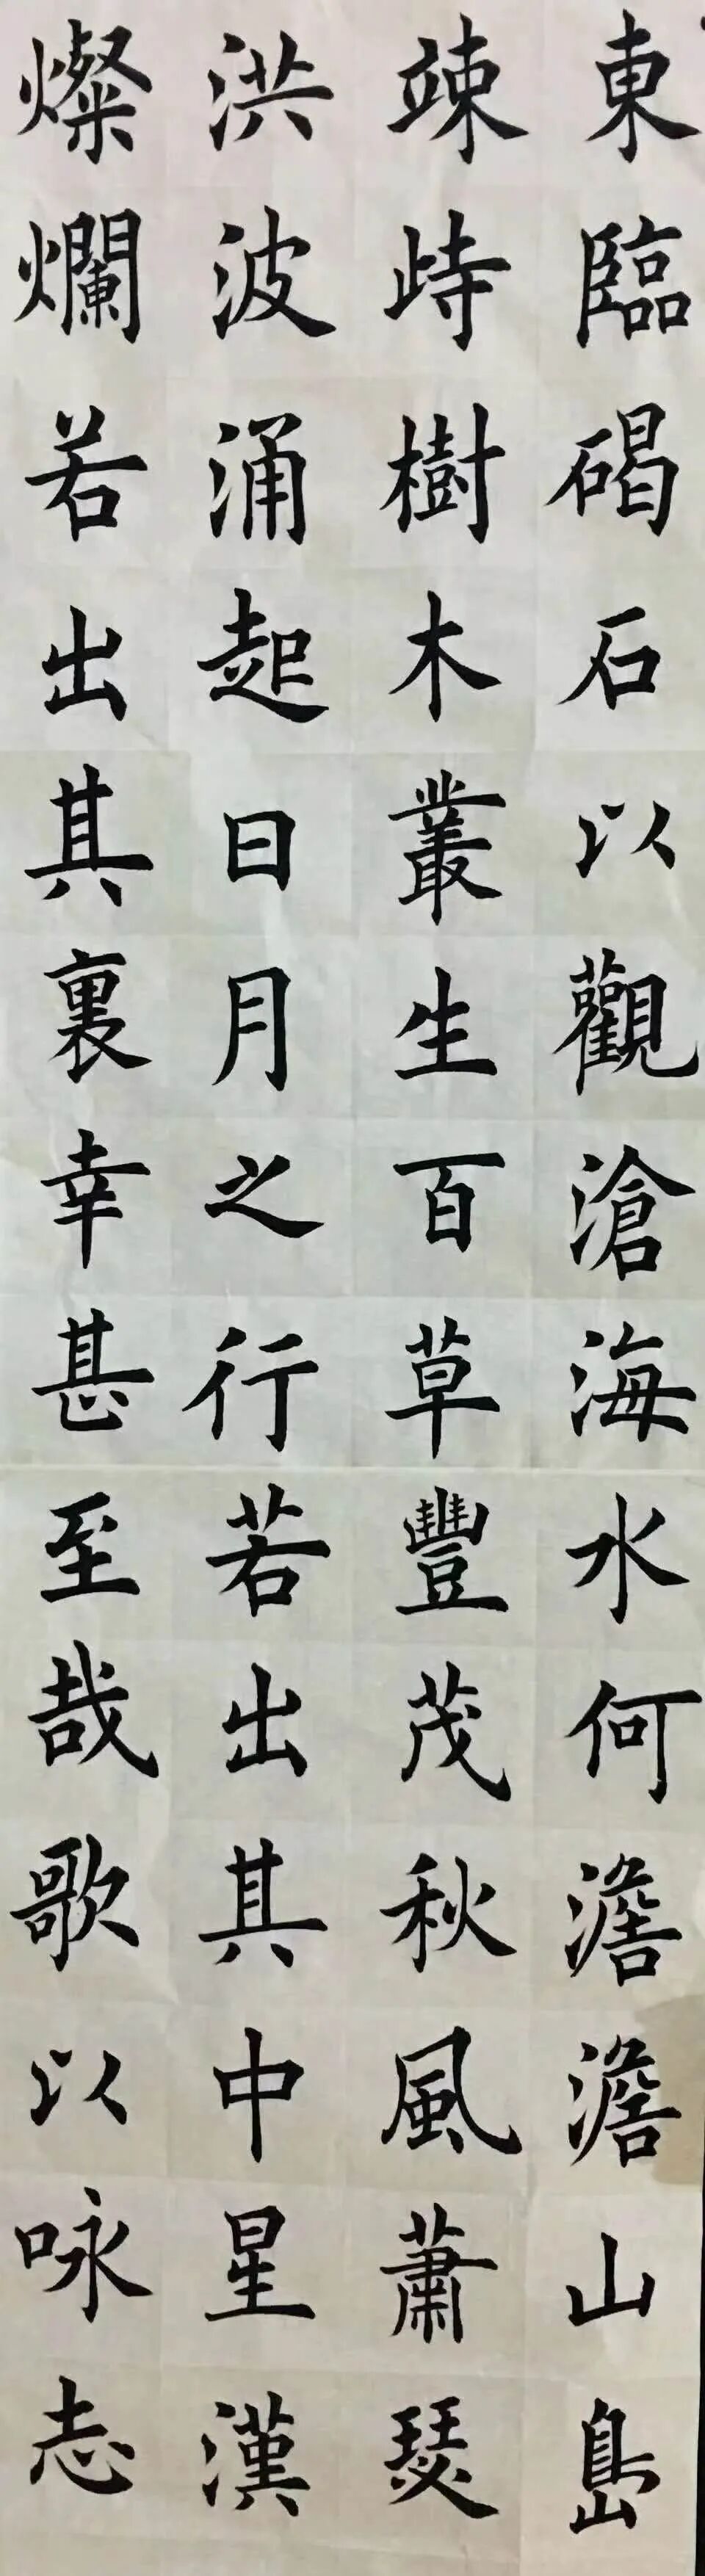 東臨碣石以觀滄海水何澹澹山島
竦峙樹木叢生百草豐茂秋風蕭瑟
洪波涌起日月之行若出其中星漢
燦爛若出其裏幸甚至哉歌以咏志